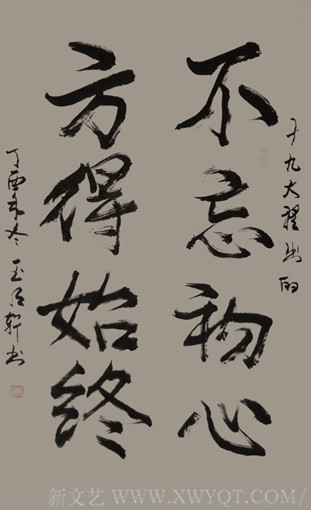 十九大出的
不忘初心
方得始终
丁酉年冬玉轩书
新文艺 WWW.XWYQT.COM/